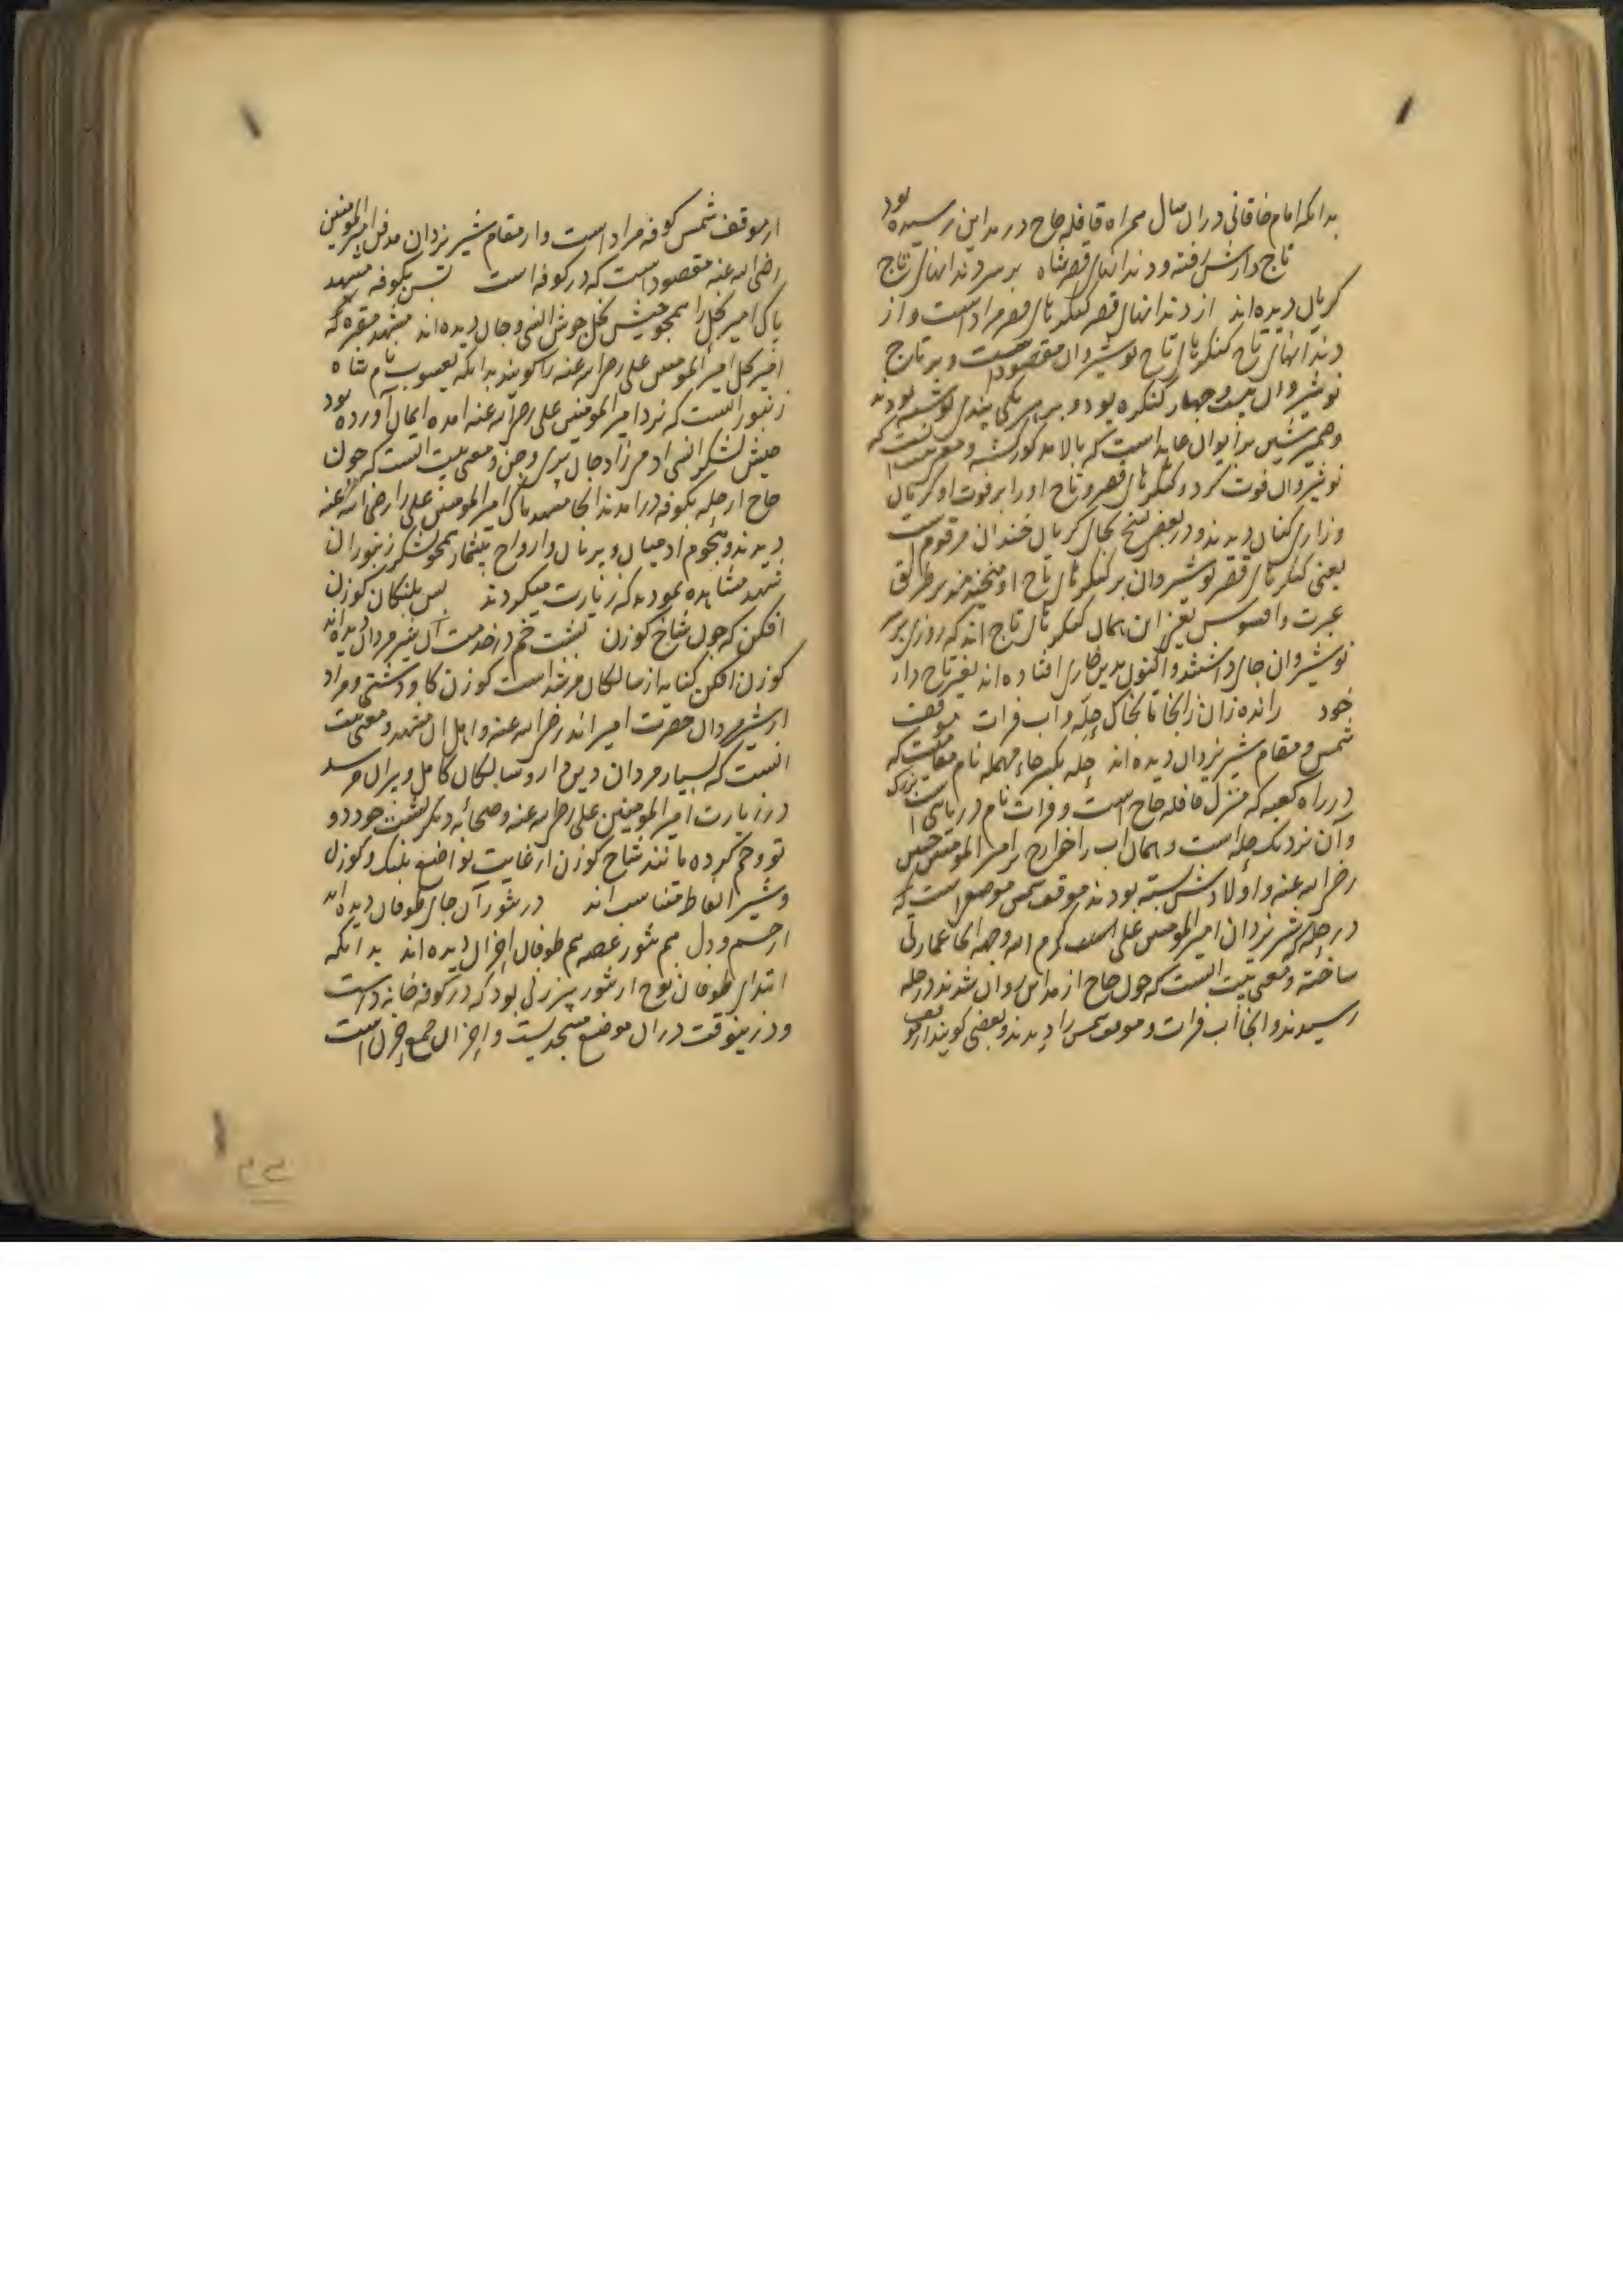 بدانکه امام خاقانی در ان سال همراه قافله حاج در مداین رسیده بود
تاج دارش رفته و دندانهای قصر شاه بر سر دندانهای تاج
کریان دیده اند از دندانهای قصر کنکرهای قصر مراد است و از
دندانهای تاج کنکرهای تاج نوشیروان مقصود است و بر تاج
نوشیروان بیست و چهار کنکره بود و بر هر یکی پندی نوشته بودند
و ضمیر شین بر ایوان عاید است که بالا مذکور کشته و معنی انست که
نوشیروان فوت کرد و کنکرهای قصر و تاج او را بر فوت او کریان
و زاری کنان دیدند و در بعضی نسخ بجای کریان خندان مرقوم است
یعنی کنکرهای قصر نوشیروان بر کنکرهای تاج او میخندند بر طریق
عبرت و افسوس یعنی ان همان کنکرهای تاج اند که روزی بر سر
نوشیروان جای داشتند و اکنون بدین خاری افتاده اند بغیر تاج دار
خود رانده زان رانجا تا بخاک حله و آب فرات موقف
شمس و مقام شیر یزدان دیده اند حله بکسر حاء مهمله نام مقامیست که
در راه کعبه که منزل قافله حاج است و فرات نام دریای است بزرک
و آن نزدیک حله است و همان آب را خوارج بر امیر المومنین حسین
رضی الله عنه و اولادش بسته بودند موقف شمس موضعی است که
در حله شیر یزدان امیر المومنین علی است کرم الله وجهه انجا عمارتی
ساخته و معنی بیت انست که چون حاج از مداین روان شدند در حله
رسیدند و انجا آب فرات و موقف شمس را دیدند و بعضی کویند از موقف
از موقف شمس کوفه مراد است و از مقام شیر یزدان مدفن امیر المومنین
رضی الله عنه مقصود است که در کوفه است پس بکوفه مشهد
پاک امیر نحل را همچو جیش نحل جوش انسی و جان دیده اند مشهد مقبره که
امیر نحل امیر المومنین علی رضی الله عنه را کویند بدانکه یعسوب نام شاه
زنبور است که نزد امیر المومنین علی رضی الله عنه امده ایمان آورده بود
جیش لشکر انسی ادمیزاد جان پری و جن و معنی بیت انست که چون
حاج از حله بکوفه درامدند انجا مشهد پاک امیر المومنین علی را رضی الله عنه
دیدند و هجوم ادمیان و پریان و ارواح بیشمار همچو لشکر زنبوران
شهد مشاهده نمودند که زیارت میکردند بس پلنکان کوزن
افکن که چون شاخ کوزن پشت خم در خدمت آن شیر مردان دیده اند
کوزن افکن کنایه از سالکان مرشد است کوزن کاو دشتی و مراد
از شیر مردان حضرت امیر اند رضی الله عنه و اهل ان مشهد و معنی بیت
انست که بسیار مردان دین دار و سالکان کامل و پیران مرشد
در زیارت امیر المومنین علی رضی الله عنه و صحابه دیکر پشت خود دو
تو و خم کرده مانند شاخ کوزن از غایت تواضع پلنک و کوزن
و شیر الفاظ متناسب اند در تنور آن جای طوفان دیده اند
از چشم و دل هم تنور غصه هم طوفان احزان دیده اند بدانکه
ابتدای طوفان نوح از تنور پیرزنی بود که در کوفه خانه داشت
و در ینوقت در ان موضع مسجدیست و احزان جمع حزن است